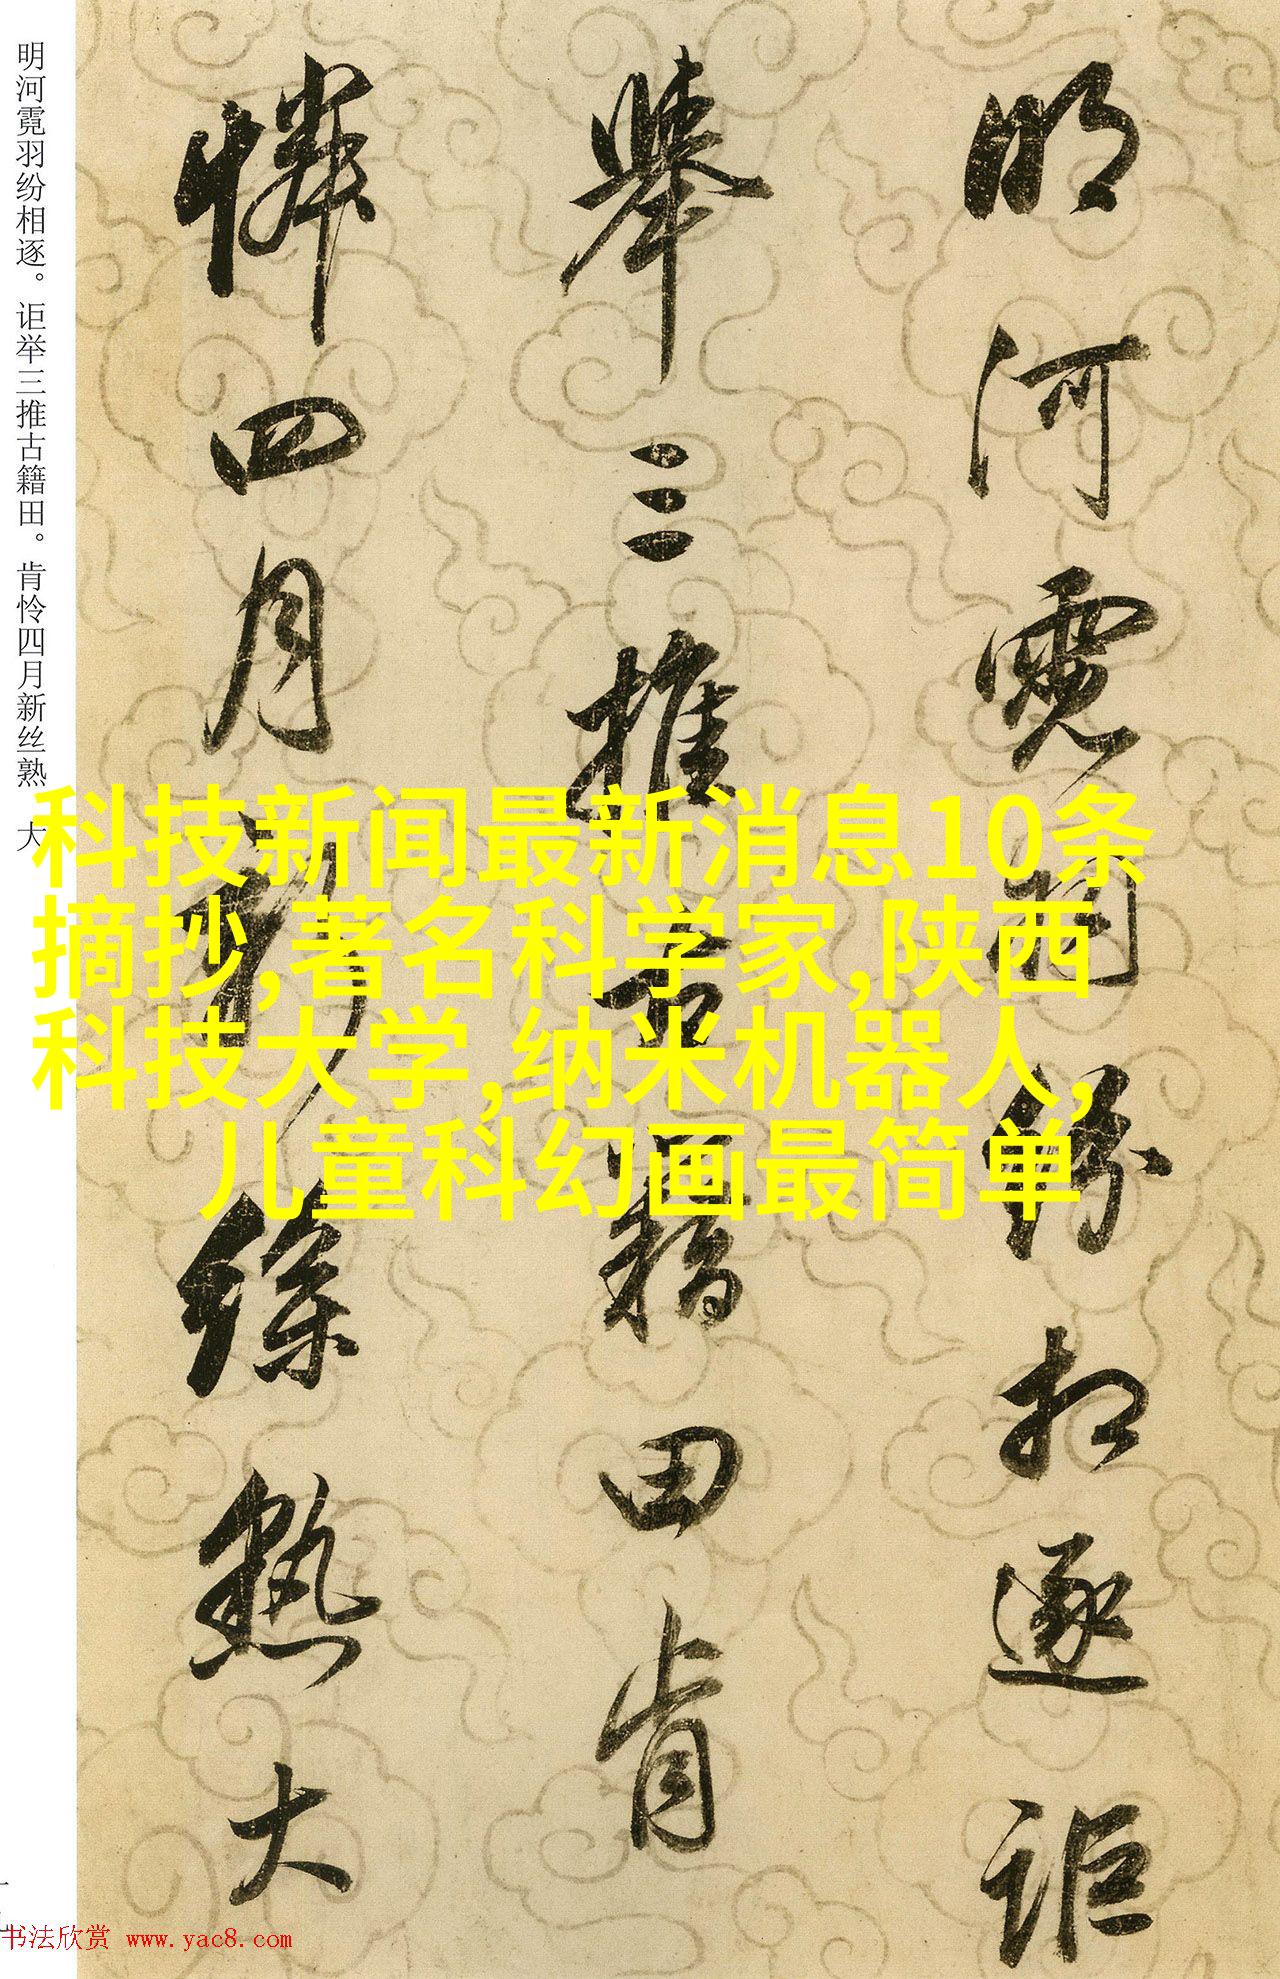 明河霓羽纷相逐。讵举三推古籍田。肯怜四月新丝熟 大
明河霓羽纷相逐讵
舉三推古籍田肯
憐四月新絲熟大
科技新闻最新消息10条
摘抄,著名科学家,陕西
科技大学,纳米机器人,
儿童科幻画最简单
书法欣赏 www.yac8.com